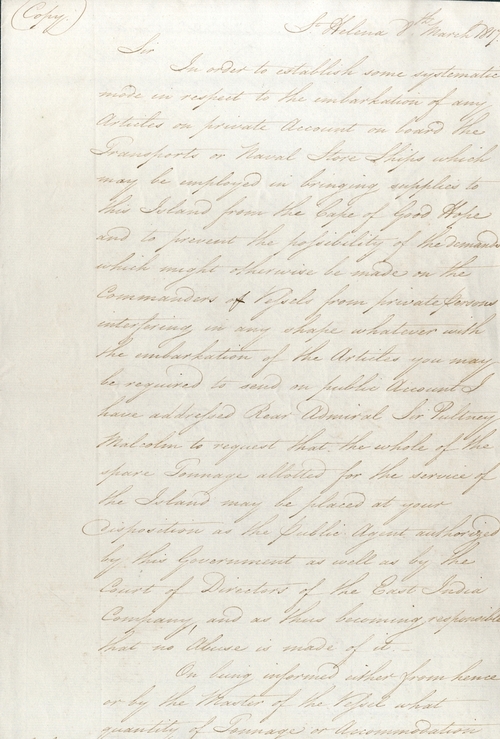 (Copy.)
St Helena 8th March 1817.
Sir
In order to establish some systematic
mode in respect to the embarkation of any
Articles on private Account on board the
Transports or Naval Store Ships which
may be employed in bringing supplies to
this Island from the Cape of Good Hope
and to prevent the possibility of the demands
which might otherwise be made on the
Commanders of Vessels from private persons
interfering in any shape whatever with
the embarkation of the Articles you may
be required to send on public Account I
have addressed Rear Admiral Sir Pultney
Malcolm to request that the whole of the
spare Tonnage allotted for the service of
the Island may be placed at your
disposition as the Public Agent authorized
by this Government as well as by the
Court of Directors of the East India
Company, and as thus becoming responsible
that no Abuse is made of it.
On being informed either from hence
or by the Master of the Vessel what
quantity of Tonnage or Accommodation